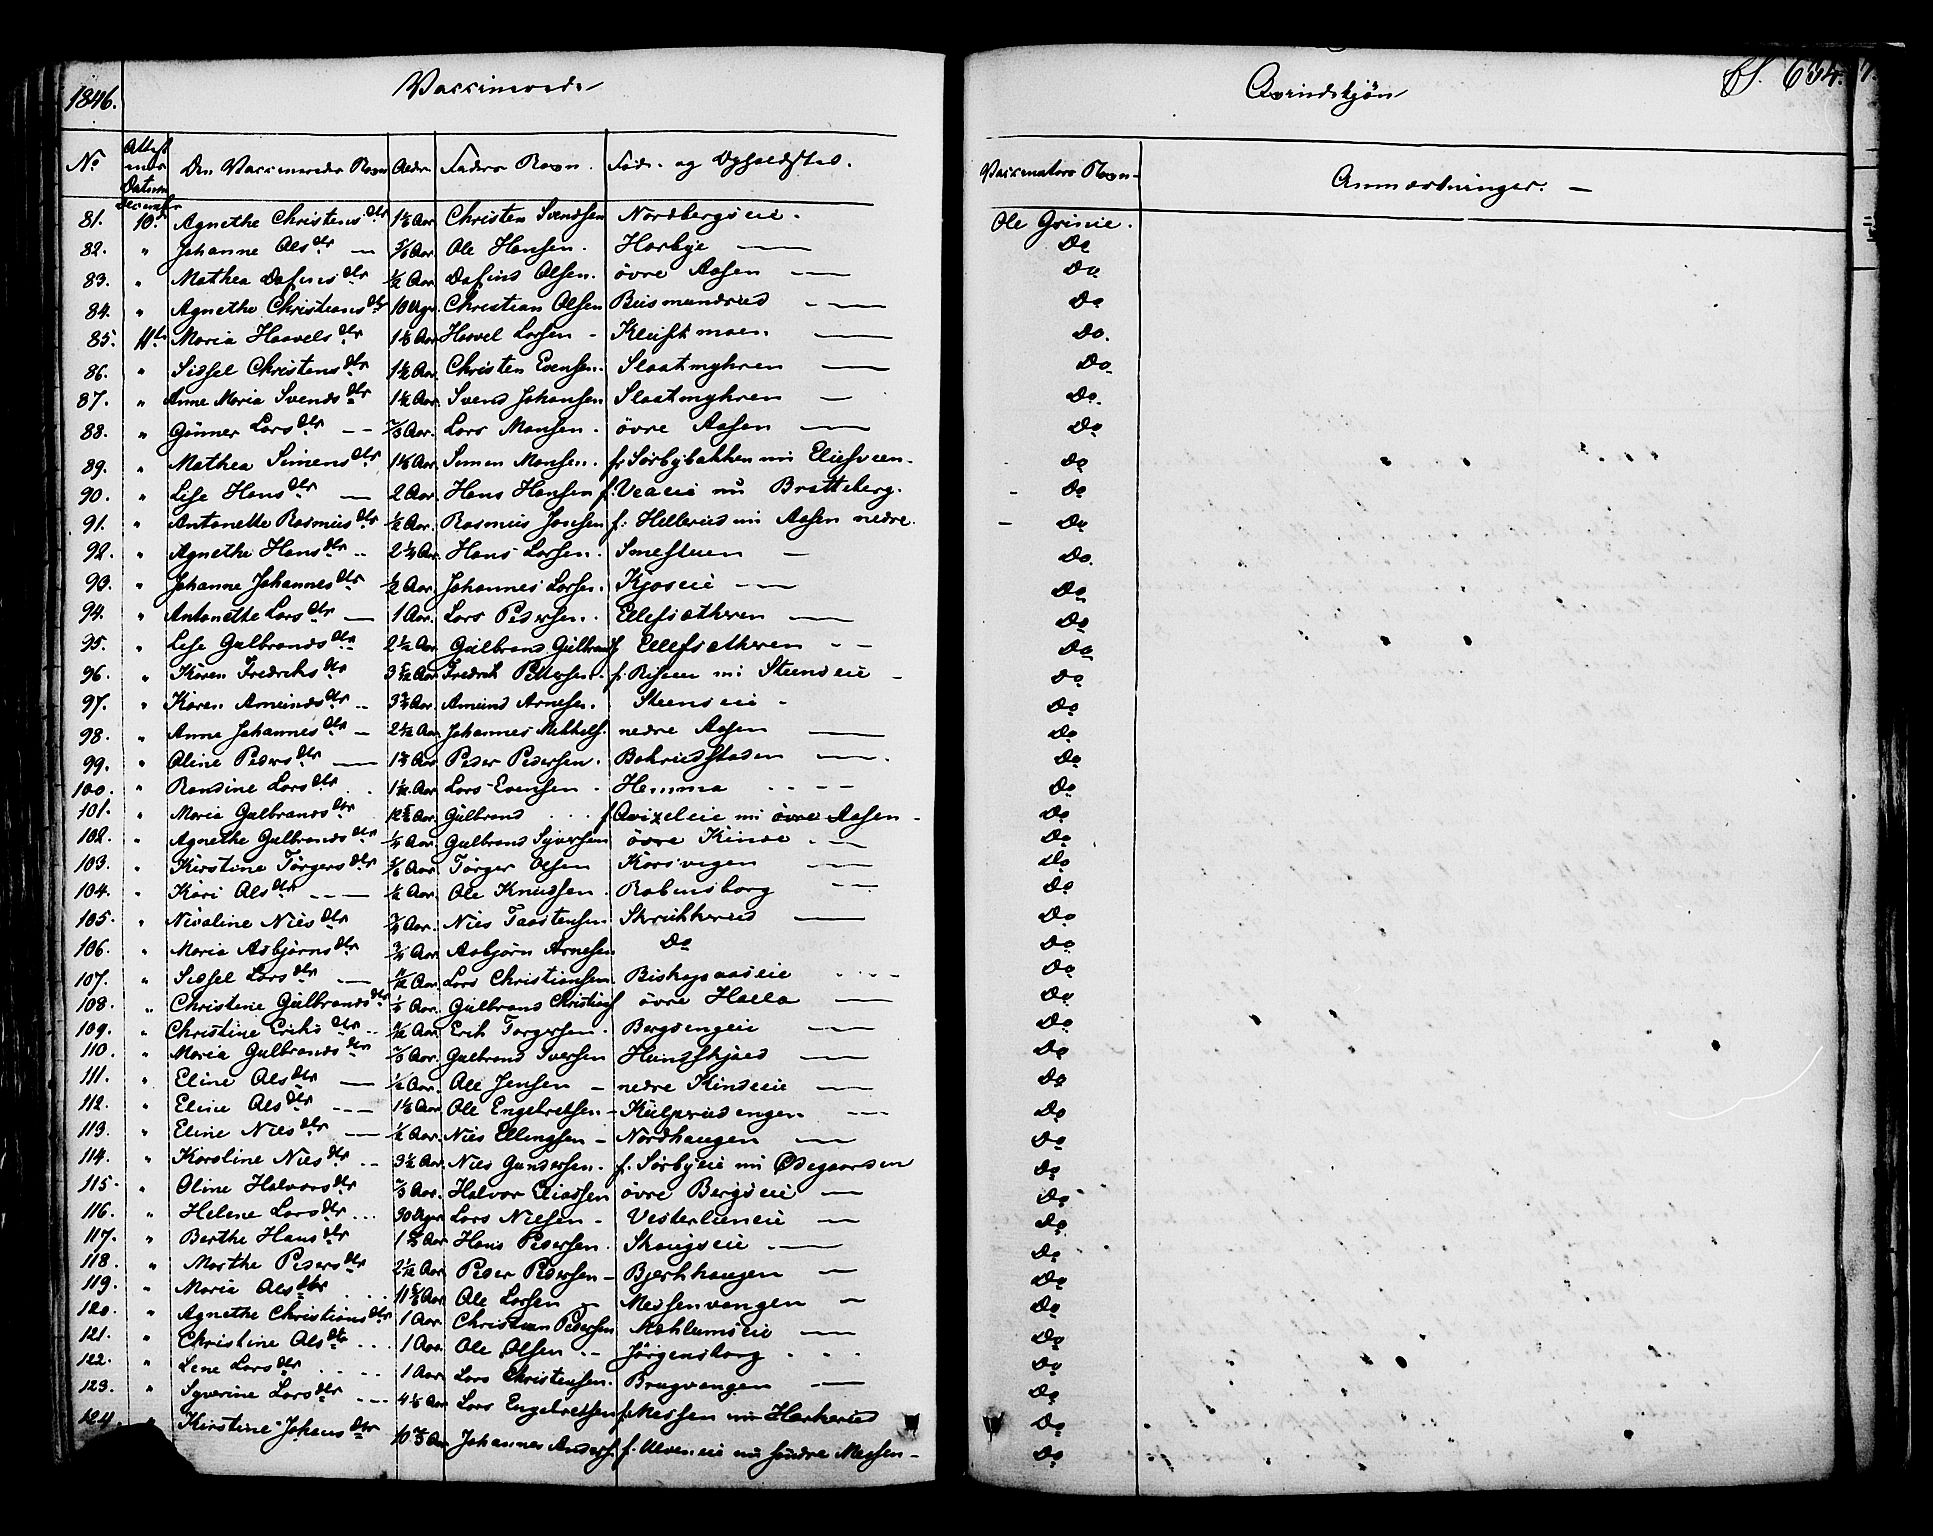 1846. Vaccinerede Qvindekjøn S. 634.
No Attest Datum Den Vaccineredes Navn Alder Faders Navn. Føde- og Opholdsted. Vaccinators Navn Anmærkninger. —
81. December 10de Agnethe Christensdtr Aar Christen Svendsen Nordbergseie. Ole Grinie.
82. " Johanne Olsdtr — Aar Ole Hansen. Harbye — Do
83. " Mathea Dafinsdtr ½ Aar Dafind Olsen. övre Aasen — Do
84. " Agnethe Christiansdtr 10 Uger Christian Olsen Bismundrud — Do
85. 11te Maria Haavelsdtr Aar Haavel Larsen - Kleiftmoen. — Do.
86. " Sidsel Christensdtr 1½ Aar Christen Evensen. Slaatmyhren — Do
87. " Anne Maria Svendsdtr 1½ Aar Svend Johansen Slaatmyhren — Do.
88. " Gunner Larsdtr — Aar. Lars Monsen. övre Aasen — Do
89. " Mathea Simensdtr Aar. Simen Monsen. f. Sørbybakken nu Eliesveen. Do
90. " Lise Hansdtr — 2 Aar. Hans Hansen f. Veaeie nu Bratteberg. Do
91. " Antonette Rasmusdtr ½ Aar. Rasmus Jonsen f. Hellerud nu Aasen nedre. Do
92. " Agnethe Hansdtr 2¼ Aar. Hans Larsen. Smestuen — Do.
93. " Johanne Johannesdtr ½ Aar Johannes Larsen. Kjoseie — Do
94. " Antonethe Larsdtr — 1 Aar. Lars Pedersen. Ellefsæthren — Do
95. " Lise Gulbrandsdtr 2½ Aar Gulbrand Gulbrands Ellefsæthren - - Do
96. " Karen Fredriksdtr Aar Fredrik Pettersen. f. nu Steenseie - Do
97. " Karen Amundsdtr Aar Amund Arnesen. Steenseie - Do
98. " Anne Johannesdtr — Aar Johannes Mikkels. nedre Aasen — Do
99. " Oline Pedersdtr — Aar Peder Pedersen. Bakrudstaden — Do
100. " Randine Larsdtr Aar Lars Evensen. Hemma Do
101. " Maria Gulbrandsdtr Aar Gulbrand f. nu övre Aasen - Do
102. " Agnethe Gulbrandsdtr Aar Gulbrand Syversen övre Kinde Do
103. " Kirstine Torgersdtr Aar Torger Olsen Korsvegen — Do
104. " Kari Olsdtr — Aar Ole Knudsen. Robensborg — Do
105. " Nicoline Nilsdtr Aar. Nils Taastensen Skrukkerud — Do
106. " Maria Asbjørnsdtr ¾ Aar Asbjørn Arnesen Do Do
107. " Sidsel Larsdtr — Aar Lars Christiansen Bishopaaseie Do
108. " Christine Gulbrandsdtr Aar Gulbrand Christians övre Halla — Do
109. " Christine Eriksdtr Aar Erik Torgersen. Bergsengeie — Do
110. " Maria Gulbrandsdtr Aar. Gulbrand Iversen Hundskjæd — Do
111. " Eline Olsdtr — Aar. Ole Jensen - nedre Kindseie — Do
112. " Eline Olsdtr — Aar. Ole Engebretsen - Kulperudengen — Do
113. " Eline Nilsdtr — ½ Aar. Nils Ellingsen - Nordhaugen — Do
114. " Karoline Nilsdtr 3½ Aar. Nils Gundersen. f. Sørbyeie nu Ødegaarden Do
115. " Oline Halvorsdtr Aar. Halvor Eliassen övre Bergseie — Do
116. " Helene Larsdtr 30 Uger Lars Nielsen - Vesterlieneie — Do
117. " Berthe Hansdtr Aar Hans Pedersen. Skougseie — Do
118. " Marthe Pedersdtr Aar Peder Pedersen - Bjerkhaugen — Do
119. " Maria Olsdtr Aar Ole Larsen - Messenvangen — Do
120. " Agnethe Christiansdtr 1 Aar Christian Pedersen Mæhlumseie — Do
121. " Christine Olsdtr 1 Aar. Ole Olsen. Jörgensborg Do
122. " Lene Larsdtr 1 Aar Lars Christensen. Brugvangen — Do
123. " Syverine Larsdtr Aar Lars Engebretsen f. Messen nu Horkerud Do
124. " Kirstine Johansdtr Aar Johannes Anders. f. Ulveneie nu søndre Messen - Do